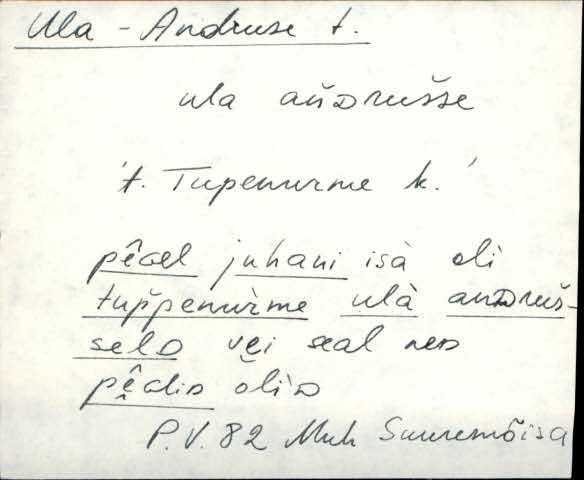 Ula - Andruse t.
ula añdrušse
't. Tupenurme k.'
pêael juhani isà oli
tup̌penur̀me ulà andruš-
selᴅ vęi seal neᴅ
pệaliᴅ ol̀iᴅ
P.V. 82 Muh Suuremõisa